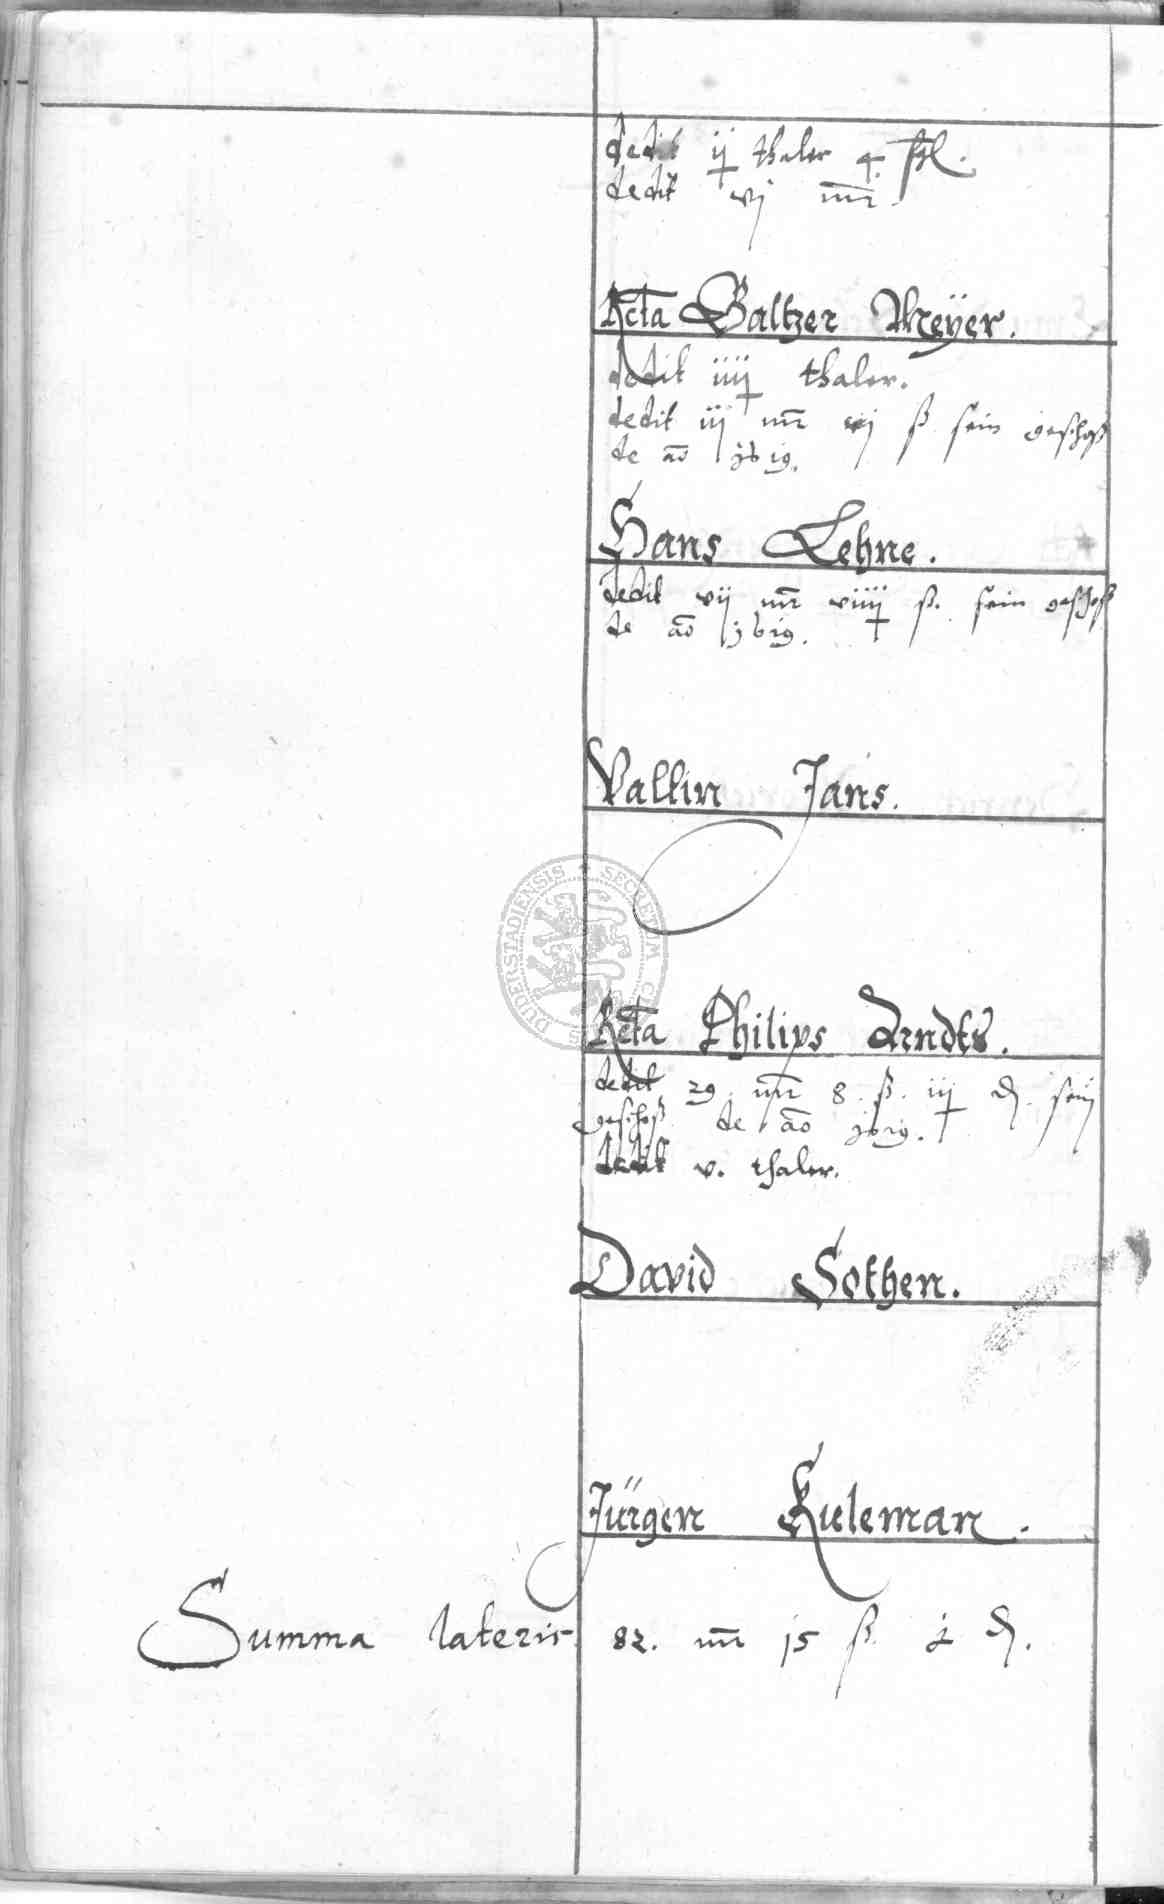 dedit ij thaler 4. ßl.
dedit vj mr
Rcta Baltzer Meÿer.
dedit iiij thaler.
dedit iij mr vj ß sein geschoß
de ao 1619.
Hans Lehne.
dedit vij mr viiij ß. sein geschoß
de ao 1619.
Valtin Jans.
Rcta Philips Arndts.
dedit 29 mr 8. ß. iij d. sein
geschoß de ao 1619.
dedit v. thaler.
David Sothen.
Jürgen Kuleman.
Summa lateris 82. mr 15 ß d.
DUDERSTADIENSIS SECRETUM